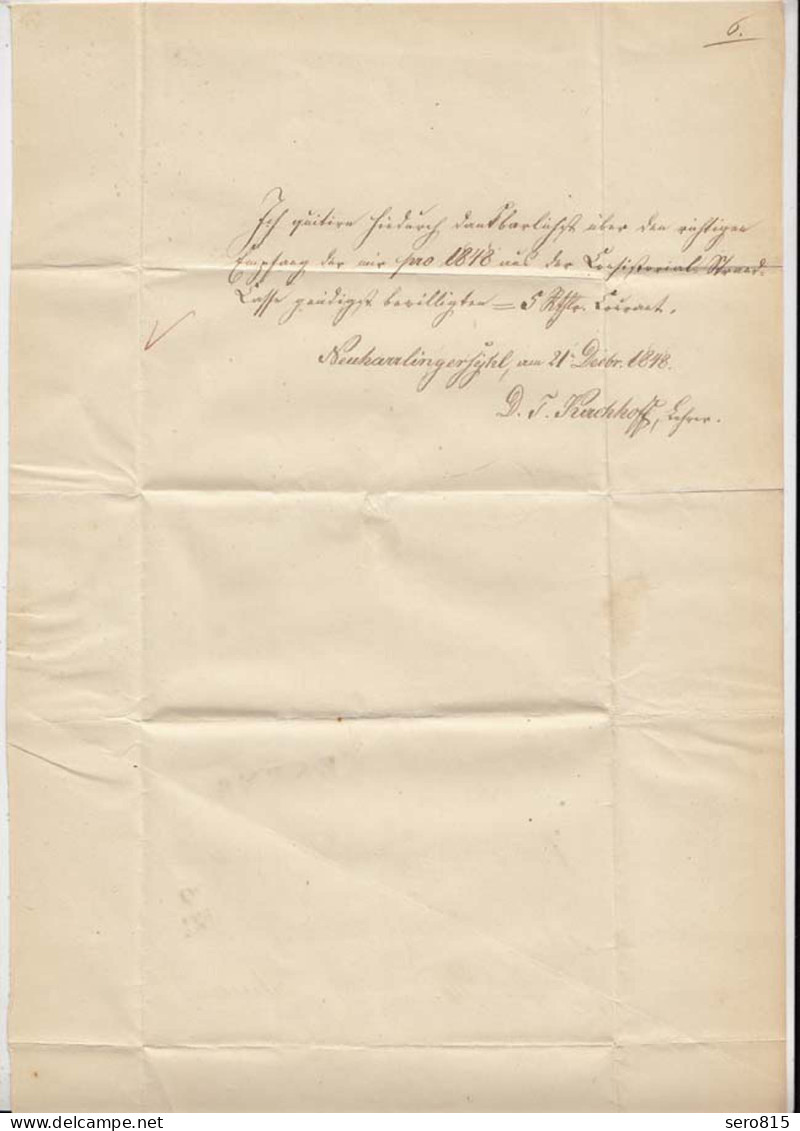 6.
Ich quitire hiedurch dankbarlichst über den richtigen
Empfang der mir pro 1848 aus der Consistorial-
Casse gnädigst bewilligten = 5 Rthlr. Courant.
Neuharrlingersyhl, am 21. Decbr. 1848.
D. T. Kerchhoff, Lehrer.
sero815